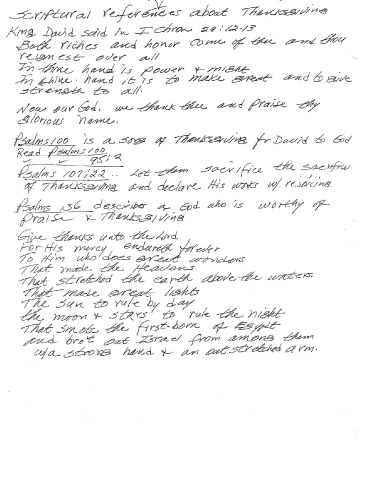 Scriptural references about Thanksgiving
King David said in I Chron 29:12-13
Both riches and honor come of thee and thou
reignest over all
In thine hand is power & might
In thine hand it is to make great and to give
strength to all.
Now our God, we thank thee and praise thy
glorious name.
Psalms 100 is a song of Thanksgiving fr David to God
Read Psalms 100
" 95:2
Psalms 107:22.. Let them sacrifice the sacrifice
of Thanksgiving and declare His works w/ rejoicing
Psalms 136 describes a God who is worthy of
praise & Thanksgiving
Give thanks unto the Lord
For His mercy endureth forever
To Him who does great wonders
That made the Heavens
That stretched the earth above the waters
That made great lights
The sun to rule by day
the moon & stars to rule the night
That smote the first-born of Egypt
and bro't out Israel from among them
w/a strong hand & an outstretched arm.